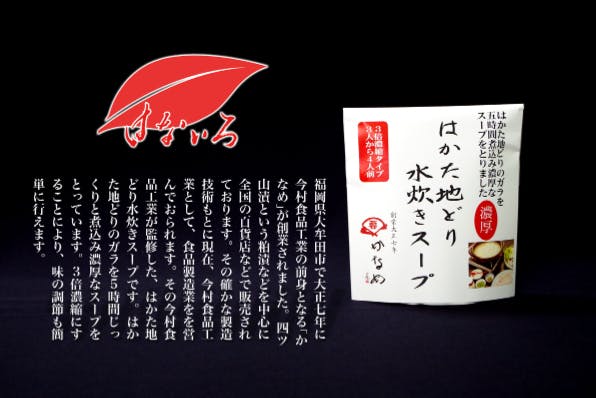 はないろ
はかた地どりのガラを
五時間煮込み濃厚な
スープをとりました
濃厚
はかた地どり
水炊きスープ
３倍濃縮タイプ
３人から４人前
創業大正七年
かなめ
福岡県大牟田市で大正七年に
今村食品工業の前身となる「か
なめ」が創業されました。四ツ
山漬という粕漬などを中心に
全国の百貨店などで販売され
ております。その確かな製造
技術もとに現在、今村食品工
業として、食品製造業をを営
んでおられます。その今村食
品工業が監修した、はかた地
どり水炊きスープです。はか
た地どりのガラを５時間じっ
くりと煮込み濃厚なスープを
とっています。３倍濃縮にす
ることにより、味の調節も簡
単に行えます。